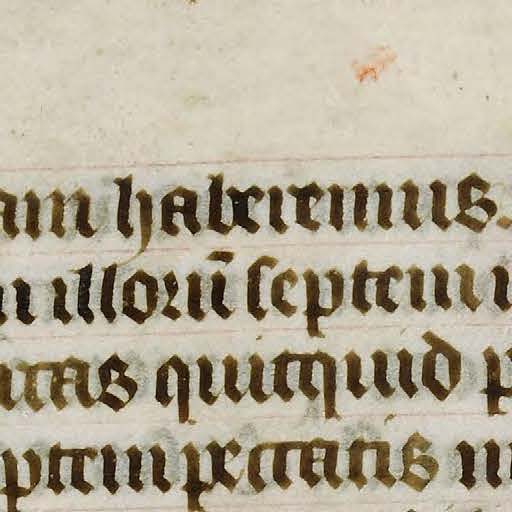 am haberemus.
illorū septem
itas quicquid p
ptem peccatis